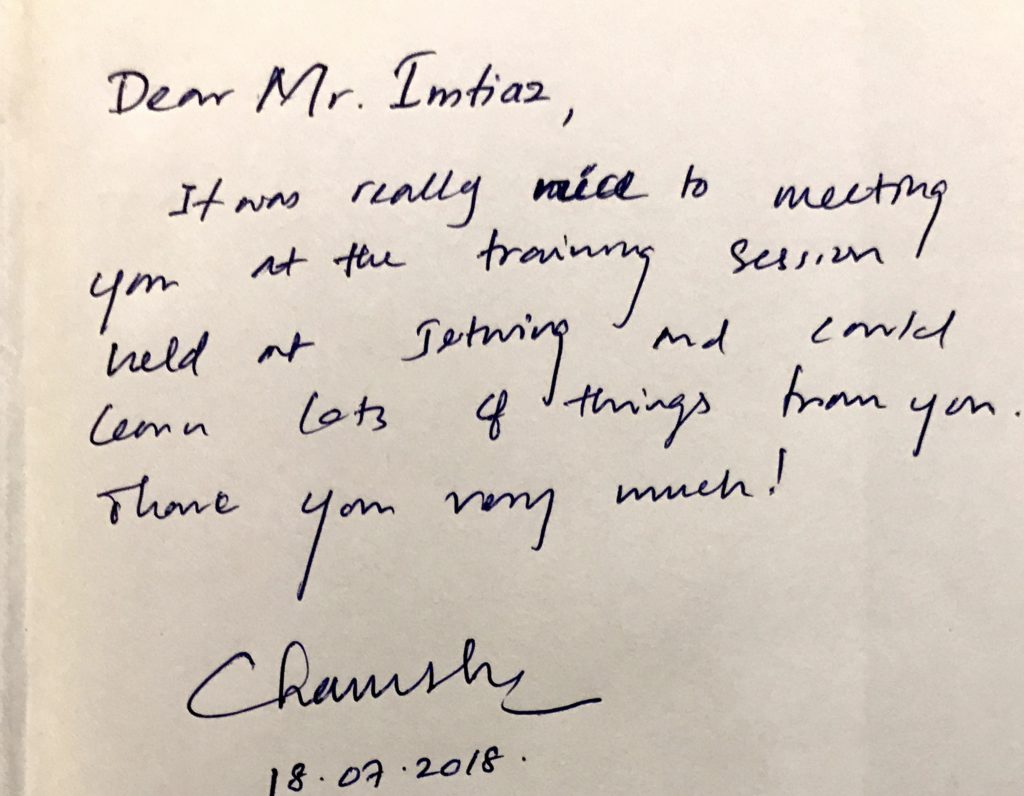 Dear Mr. Imtiaz,
It was really nice to meeting
you at the training session
held at Jetwing and could
learn lots of things from you.
Thank you very much!
18.07.2018.